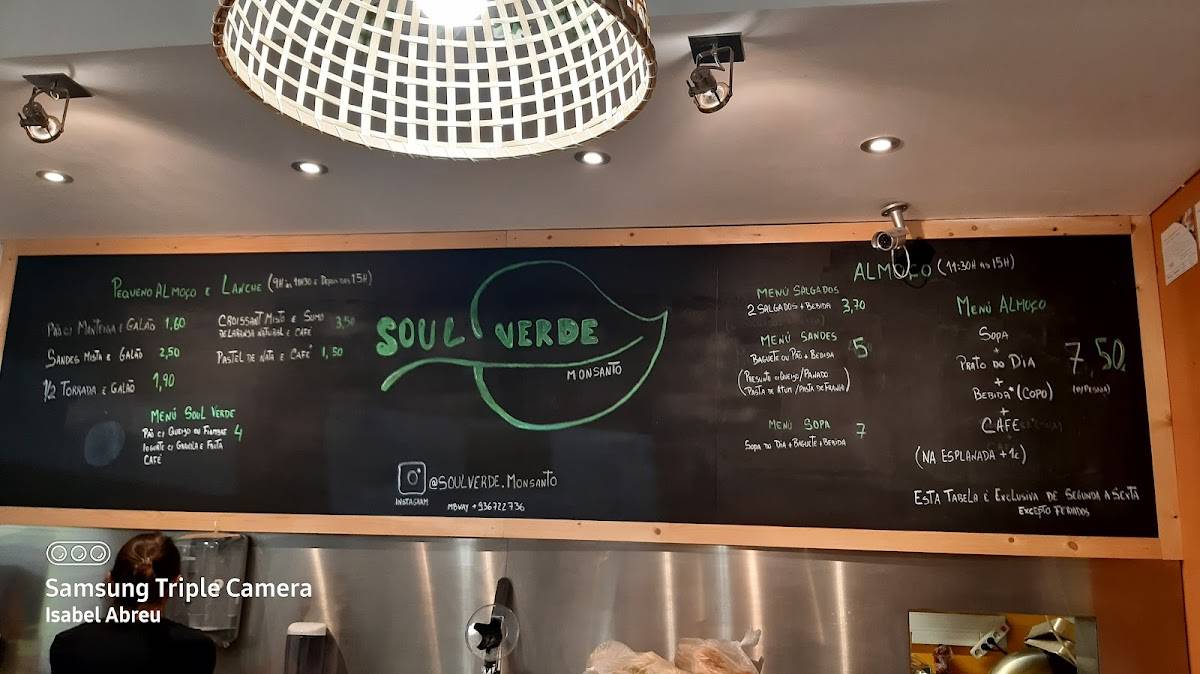 PEQUENO ALMOÇO E LANCHE (9H às 11H30 E DEPOIS DAS 15H)
PÃO C/ MANTEIGA E GALÃO 1,60
SANDES MISTA E GALÃO 2,50
1/2 TORRADA E GALÃO 1,90
CROISSANT MISTO E SUMO 3,50
DE LARANJA NATURAL E CAFÉ
PASTEL DE NATA E CAFÉ 1,50
MENÚ SOUL VERDE
PÃO C/ QUEIJO OU FIAMBRE 4
IOGURTE C/ GRANOLA E FRUTA
CAFÉ
SOUL VERDE
MONSANTO
INSTAGRAM
@SOULVERDE.MONSANTO
MBWAY +936722736
ALMOÇO (11:30H ÀS 15H)
MENÚ SALGADOS
2 SALGADOS + BEBIDA 3,70
MENÚ SANDES
BAGUETE OU PÃO + BEBIDA 5
(PRESUNTO C/ QUEIJO / PANADO
PASTA DE ATUM / PASTA DE FRANGO)
MENÚ SOPA 7
SOPA DO DIA + BAGUETE + BEBIDA
MENÚ ALMOÇO
SOPA
+
PRATO DO DIA 7,50
+
BEBIDA* (COPO)
+
CAFÉ
(NA ESPLANADA +1€)
ESTA TABELA É EXCLUSIVA DE SEGUNDA A SEXTA
EXCEPTO FERIADOS
Samsung Triple Camera
Isabel Abreu